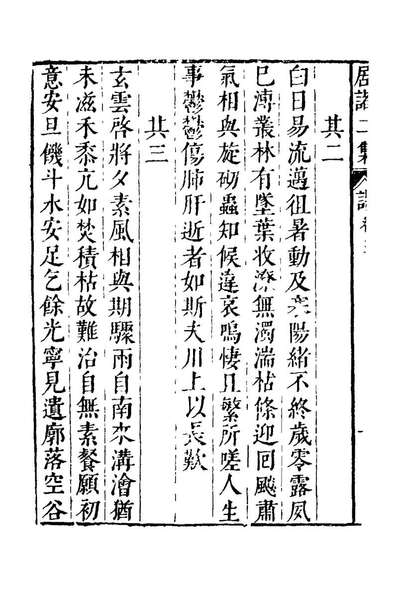 居諸二集 詩卷
一
其二
白日易流邁徂暑動及陽緒不終歲零露夙
已漙叢林有墜葉收潦無濁湍枯條迎回飈肅
氣相與旋砌蟲知候違哀鳴悽且繁所嗟人生
事鬱鬱傷肺肝逝者如斯夫川上以長歎
其三
玄雲啓將夕素風相與期驟雨自南來溝澮猶
未滋禾黍亢如焚積枯故難治自無素餐願初
意安旦饑斗水安足乞餘光寧見遺廓落空谷